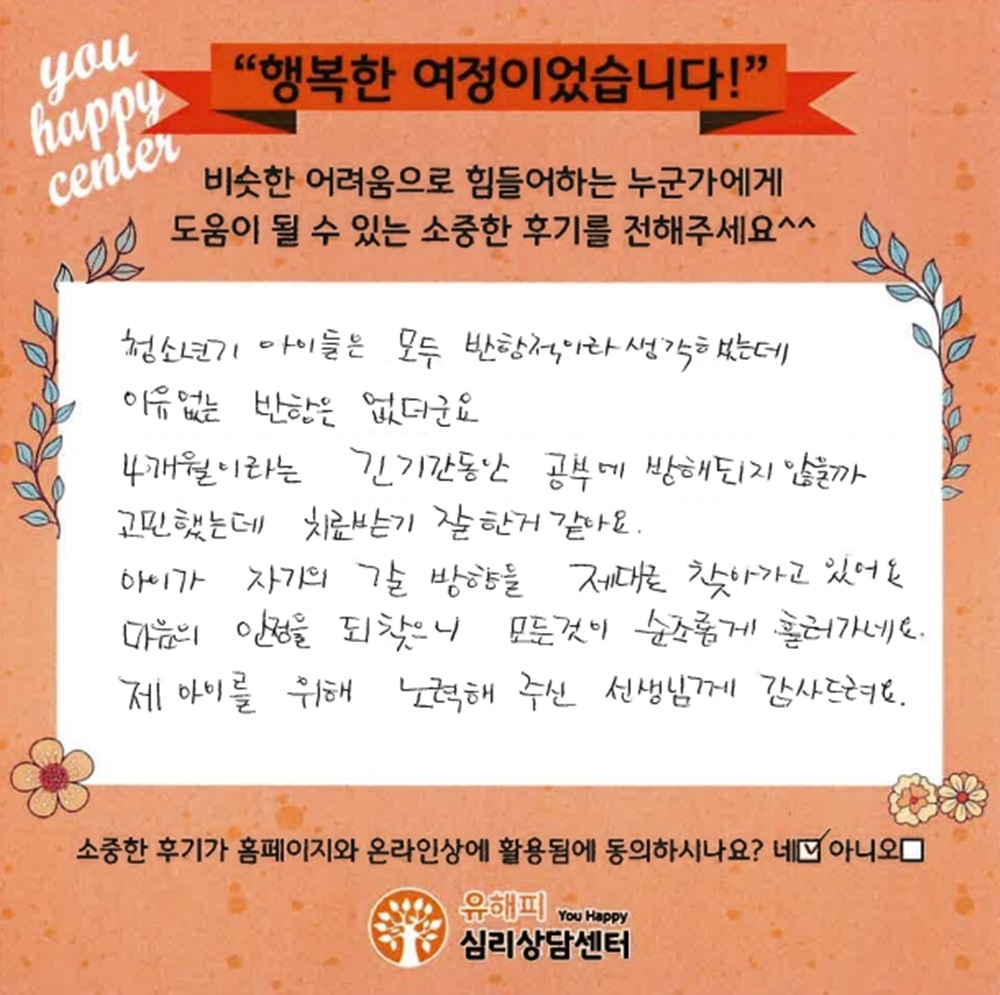 you
happy
center
“행복한 여정이었습니다!”
비슷한 어려움으로 힘들어하는 누군가에게
도움이 될 수 있는 소중한 후기를 전해주세요^^
청소년기 아이들은 모두 반항적이라 생각했는데
이유없는 반항은 없더군요
4개월이라는 긴 기간동안 공부에 방해되지 않을까
고민했는데 치료받기 잘 한거 같아요.
아이가 자기의 갈 방향을 제대로 찾아가고 있어요
마음의 안정을 되찾으니 모든것이 순조롭게 흘러가네요.
제 아이를 위해 노력해 주신 선생님께 감사드려요.
소중한 후기가 홈페이지와 온라인상에 활용됨에 동의하시나요? 네☑ 아니오☐
유해피 You Happy
심리상담센터